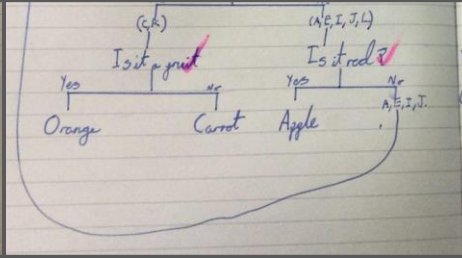 (C, K) (A, E, I, J, L)
Is it a fruit Is it red?
Yes No Yes No
A, E, I, J.
Orange Carrot Apple